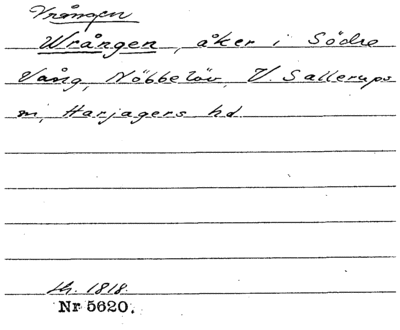 Vrången
Wrången, åker i Södre
Vång, Nöbbelöv, V. Sallerups
sn, Harjagers hd
Lh. 1818.
Nr 5620.